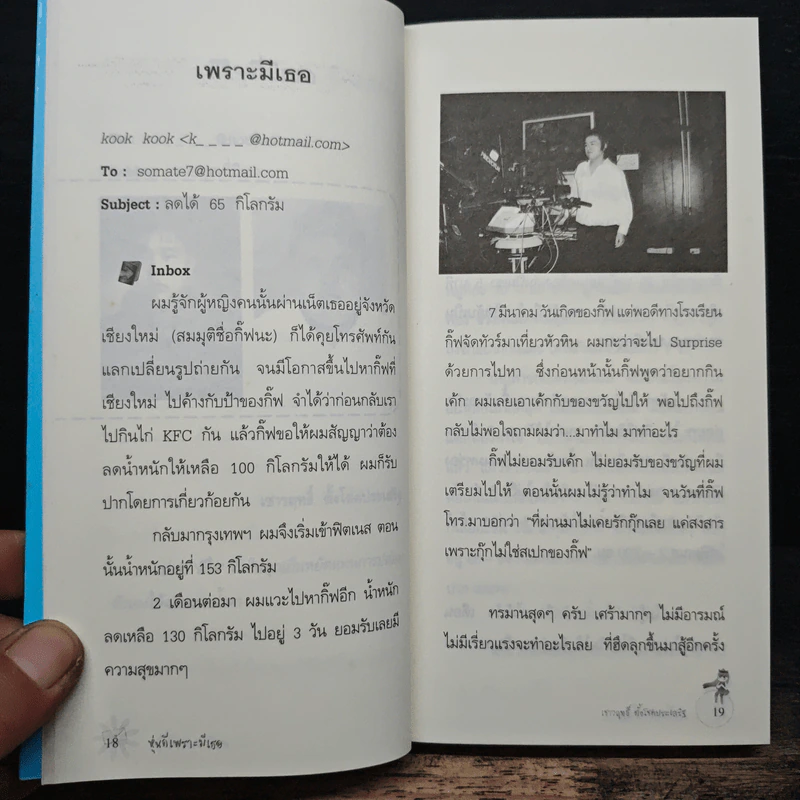 เพราะมีเธอ
kook kook <k_ _ _ _ @hotmail.com>
To : somate7@hotmail.com
Subject : ลดได้ 65 กิโลกรัม
Inbox
ผมรู้จักผู้หญิงคนนั้นผ่านเน็ตเธออยู่จังหวัด
เชียงใหม่ (สมมุติชื่อกิ๊ฟนะ) ก็ได้คุยโทรศัพท์กัน
แลกเปลี่ยนรูปถ่ายกัน จนมีโอกาสขึ้นไปหากิ๊ฟที่
เชียงใหม่ ไปค้างกับป้าของกิ๊ฟ จำได้ว่าก่อนกลับเรา
ไปกินไก่ KFC กัน แล้วกิ๊ฟขอให้ผมสัญญาว่าต้อง
ลดน้ำหนักให้เหลือ 100 กิโลกรัมให้ได้ ผมก็รับ
ปากโดยการเกี่ยวก้อยกัน
กลับมากรุงเทพฯ ผมจึงเริ่มเข้าฟิตเนส ตอน
นั้นน้ำหนักอยู่ที่ 153 กิโลกรัม
2 เดือนต่อมา ผมแวะไปหากิ๊ฟอีก น้ำหนัก
ลดเหลือ 130 กิโลกรัม ไปอยู่ 3 วัน ยอมรับเลยมี
ความสุขมากๆ
18 หุ่นดีเพราะมีเธอ
7 มีนาคม วันเกิดของกิ๊ฟ แต่พอดีทางโรงเรียน
กิ๊ฟจัดทัวร์มาเที่ยวหัวหิน ผมกะว่าจะไป Surprise
ด้วยการไปหา ซึ่งก่อนหน้านั้นกิ๊ฟพูดว่าอยากกิน
เค้ก ผมเลยเอาเค้กกับของขวัญไปให้ พอไปถึงกิ๊ฟ
กลับไม่พอใจถามผมว่า...มาทำไม มาทำอะไร
กิ๊ฟไม่ยอมรับเค้ก ไม่ยอมรับของขวัญที่ผม
เตรียมไปให้ ตอนนั้นผมไม่รู้ว่าทำไม จนวันที่กิ๊ฟ
โทร.มาบอกว่า “ที่ผ่านมาไม่เคยรักกุ๊กเลย แค่สงสาร
เพราะกุ๊กไม่ใช่สเปกของกิ๊ฟ”
ทรมานสุดๆ ครับ เศร้ามากๆ ไม่มีอารมณ์
ไม่มีเรี่ยวแรงจะทำอะไรเลย ที่ฮึดลุกขึ้นมาสู้อีกครั้ง
19